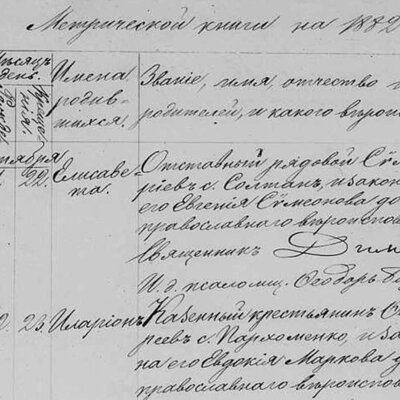 Метрической книги на 1882
Мѣсяцъ день.
Креще нія.
Имена родив- шихся.
Званіе, имя, отчество
родителей, и какого вѣроис
тября
22. Елисаве та.
Отставный рядовой
ріевъ с. Солтан, и закон
его Евгенія Сѵмеонова до
православнаго вѣроиспов
Священникъ Дим
И. д. псаломщ. Ѳеодоръ
2. 23. Иларіонъ
Казенный крестьянин
реевъ с. Пархоменко, и за
на его Евдокія Маркова д
православнаго вѣроиспов